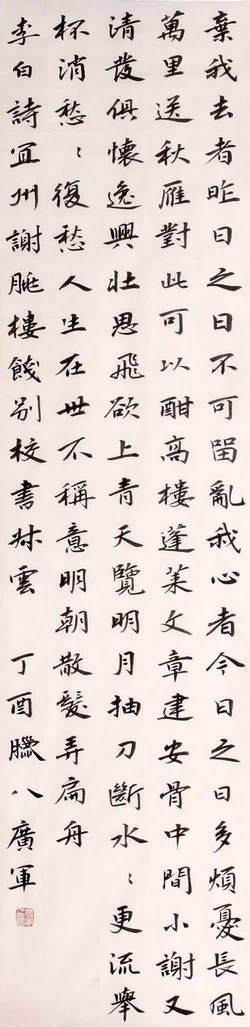 棄我去者昨日之日不可留亂我心者今日之日多煩憂長風
萬里送秋雁對此可以酣高樓蓬萊文章建安骨中間小謝又
清發俱懷逸興壯思飛欲上青天覽明月抽刀斷水〻更流舉
杯消愁〻復愁人生在世不稱意明朝散髮弄扁舟
李白詩宣州謝朓樓餞別校書叔雲 丁酉臘八廣軍